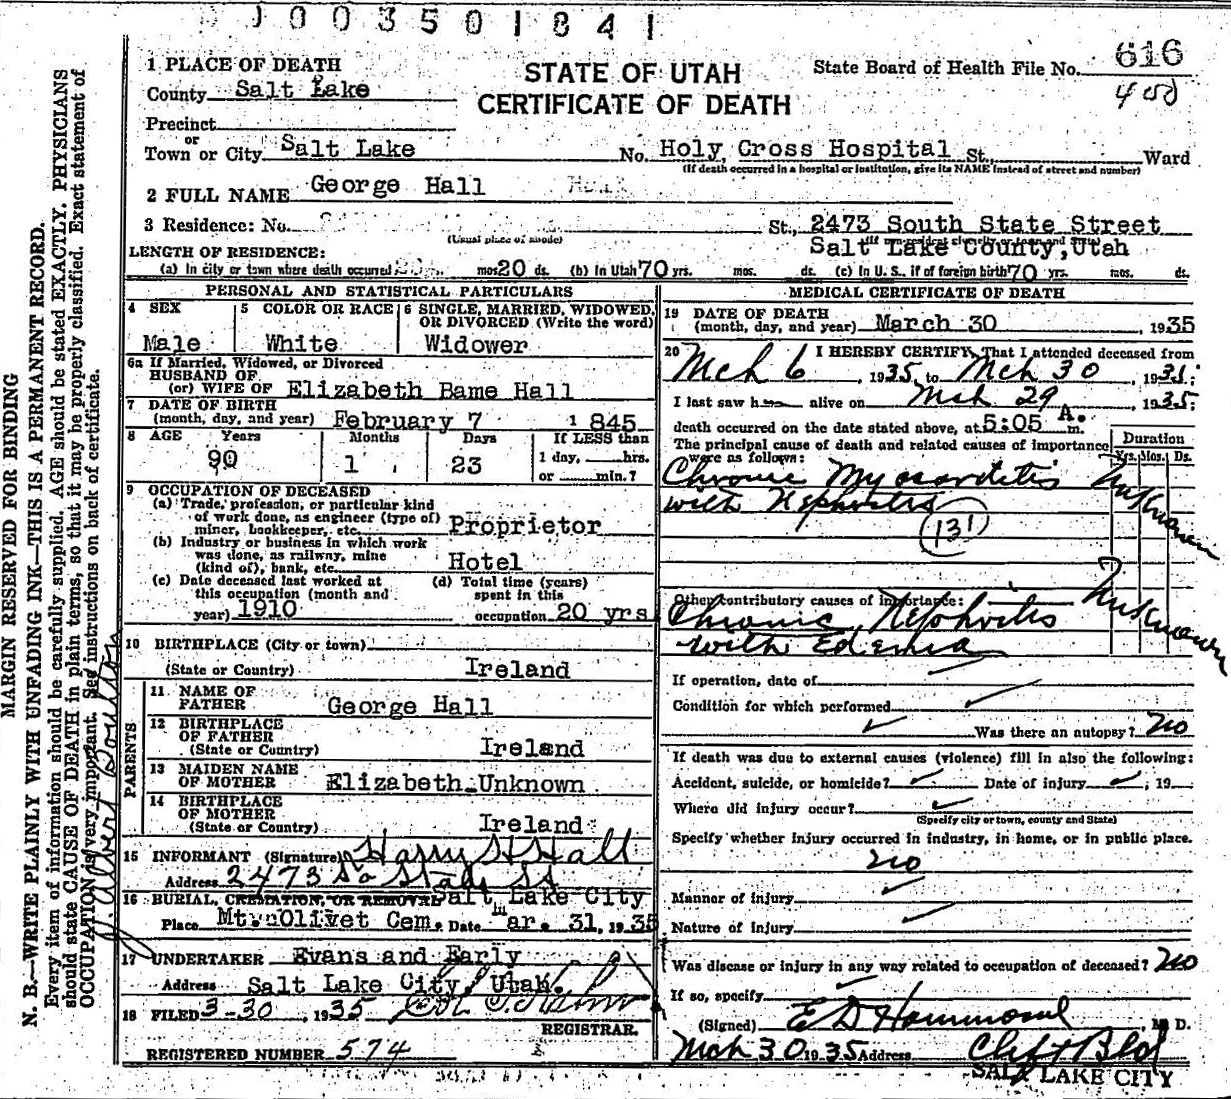 J 0 0 3 5 0 1 8 4 1
1 PLACE OF DEATH
STATE OF UTAH
CERTIFICATE OF DEATH
State Board of Health File No. 616
400
County Salt Lake
Precinct
or
Town or City Salt Lake No. Holy Cross Hospital St., Ward
(If death occurred in a hospital or institution, give its NAME instead of street and number)
2 FULL NAME George Hall
3 Residence: No. St., 2473 South State Street
(Usual place of abode)
Salt Lake County, Utah
LENGTH OF RESIDENCE:
(a) In city or town where death occurred mos. 20 ds. (b) In Utah 70 yrs. mos. ds. (c) In U. S., if of foreign birth 70 yrs. mos. ds.
PERSONAL AND STATISTICAL PARTICULARS
4 SEX
Male
5 COLOR OR RACE
White
6 SINGLE, MARRIED, WIDOWED, OR DIVORCED (Write the word)
Widower
6a If Married, Widowed, or Divorced
HUSBAND OF
(or) WIFE OF Elizabeth Bame Hall
7 DATE OF BIRTH
(month, day, and year) February 7 1845
8 AGE Years Months Days If LESS than
90 1 23 1 day, hrs.
or min.?
9 OCCUPATION OF DECEASED
(a) Trade, profession, or particular kind
of work done, as engineer (type of)
miner, bookkeeper, etc. Proprietor
(b) Industry or business in which work
was done, as railway, mine
(kind of), bank, etc. Hotel
(c) Date deceased last worked at
this occupation (month and
year) 1910
(d) Total time (years)
spent in this
occupation 20 yrs
10 BIRTHPLACE (City or town)
(State or Country) Ireland
PARENTS
11 NAME OF
FATHER George Hall
12 BIRTHPLACE
OF FATHER
(State or Country) Ireland
13 MAIDEN NAME
OF MOTHER Elizabeth Unknown
14 BIRTHPLACE
OF MOTHER
(State or Country) Ireland
15 INFORMANT (Signature) Harry H Hall
Address 2473 So State St
16 BURIAL, CREMATION, OR REMOVAL Salt Lake City
Place Mt. Olivet Cem. Date Mar. 31, 1935
17 UNDERTAKER Evans and Early
Address Salt Lake City, Utah.
18 FILED 3-30, 1935
REGISTRAR.
REGISTERED NUMBER 574
MEDICAL CERTIFICATE OF DEATH
19 DATE OF DEATH
(month, day, and year) March 30, 1935
20 I HEREBY CERTIFY, That I attended deceased from
Mch 6, 1935, to Mch 30, 1931;
I last saw h alive on Mch 29, 1935;
death occurred on the date stated above, at 5:05 A. m.
The principal cause of death and related causes of importance
were as follows:
Duration
Yrs. Mos. Ds.
Chronic Myocarditis
with Nephritis
Unknown
(131)
Other contributory causes of importance:
Chronic Nephritis
with Edema
Unknown
If operation, date of
Condition for which performed
Was there an autopsy? no
If death was due to external causes (violence) fill in also the following:
Accident, suicide, or homicide? Date of injury, 19
Where did injury occur?
(Specify city or town, county and State)
Specify whether injury occurred in industry, in home, or in public place.
no
Manner of injury
Nature of injury
Was disease or injury in any way related to occupation of deceased? no
If so, specify
(Signed) E D Hammond, M. D.
Mch 30 1935 Address Clift Bld
SALT LAKE CITY
MARGIN RESERVED FOR BINDING
N. B.—WRITE PLAINLY WITH UNFADING INK—THIS IS A PERMANENT RECORD.
Every item of information should be carefully supplied. AGE should be stated EXACTLY. PHYSICIANS
should state CAUSE OF DEATH in plain terms, so that it may be properly classified. Exact statement of
OCCUPATION is very important. See instructions on back of certificate.